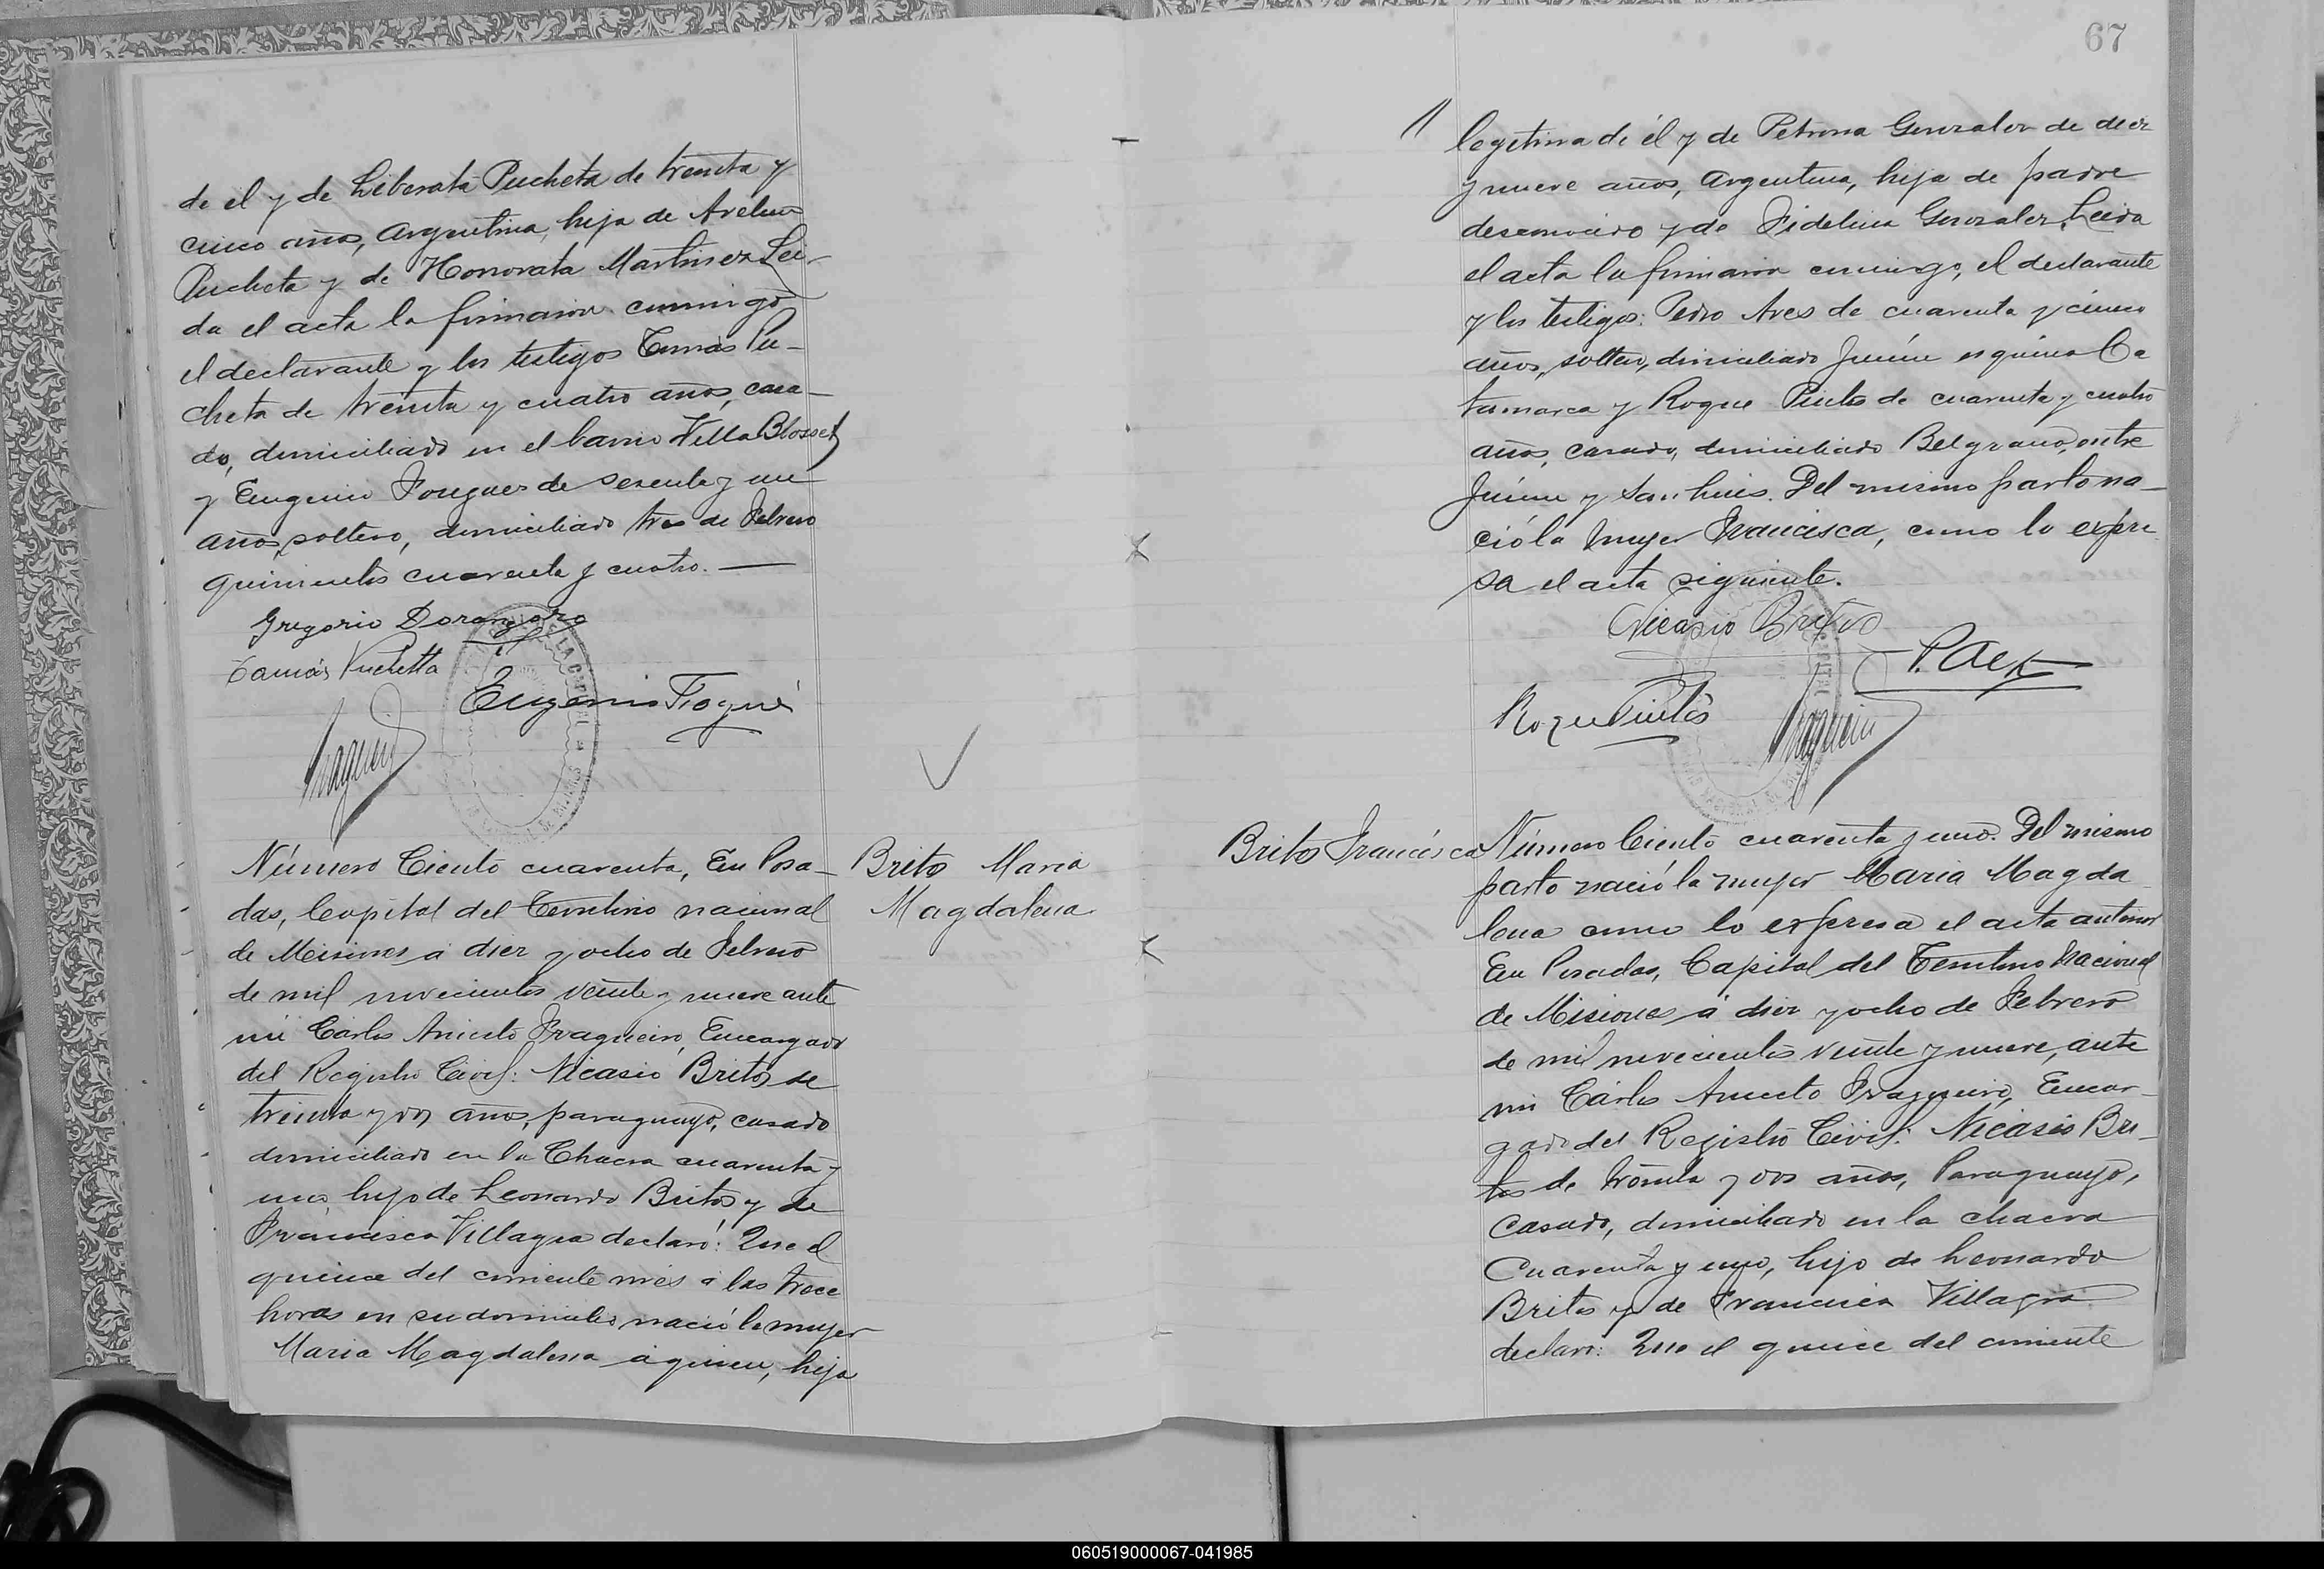 de el y de Liberata Pucheta de treinta y
cinco años, argentina, hija de Avelino
Pucheta y de Honorata Martinez Lei-
da el acta la firmaron conmigo
el declarante y los testigos Tomás Pu-
cheta de treinta y cuatro años, casa-
do, domiciliado en el barrio Villa Blosset
y Eugenio Fougues de sesenta y un
años, soltero, domiciliado tres de Febrero
quinientos cuarenta y cuatro.
Gregorio Dorangoro
Tomás Puchetta
Eugenio Fogué
Número Ciento cuarenta, En Posa-
das, Capital del Territorio nacional
de Misiones a diez y ocho de Febrero
de mil novecientos veinte y nueve ante
mi Cárlos Aniceto Fragueiro, Encargado
del Registro Civil: Nicasio Britos de
treinta y dos años, paraguayo, casado
domiciliado en la Chacra cuarenta y
uno, hijo de Leonardo Britos y de
Francisca Villagra declaró: Que el
quince del corriente mes a las trece
horas en su domicilio nació la mujer
Maria Magdalena a quien, hija
Britos Maria
Magdalena
67
legitima de él y de Petrona Gonzalez de diez
y nueve años, Argentina, hija de padre
desconocido y de Fidelina Gonzalez. Leida
el acta la firmaron conmigo, el declarante
y los testigos: Pedro Aves de cuarenta y cinco
años, soltero, domiciliado Junin esquina Ca
tamarca y Roque Pintos de cuarenta y cuatro
años, casado, domiciliado Belgrano, entre
Junin y San Luis. Del mismo parto na-
ció la mujer Francisca, como lo expre
sa el acta siguiente.
Nicasio Britos
Roque Pintos
Britos Francisca
Número Ciento cuarenta y uno. Del mismo
parto nació la mujer Maria Magda
lena como lo expresa el acta anterior
En Posadas, Capital del Territorio Nacional
de Misiones a diez y ocho de Febrero
de mil novecientos veinte y nueve, ante
mi Cárlos Aniceto Fragueiro, Encar-
gado del Registro Civil: Nicasio Bri-
tos de treinta y dos años, Paraguayo,
Casado, domiciliado en la chacra
Cuarenta y uno, hijo de Leonardo
Britos y de Francisca Villagra
declaro: Que el quince del corriente
060519000067-041985